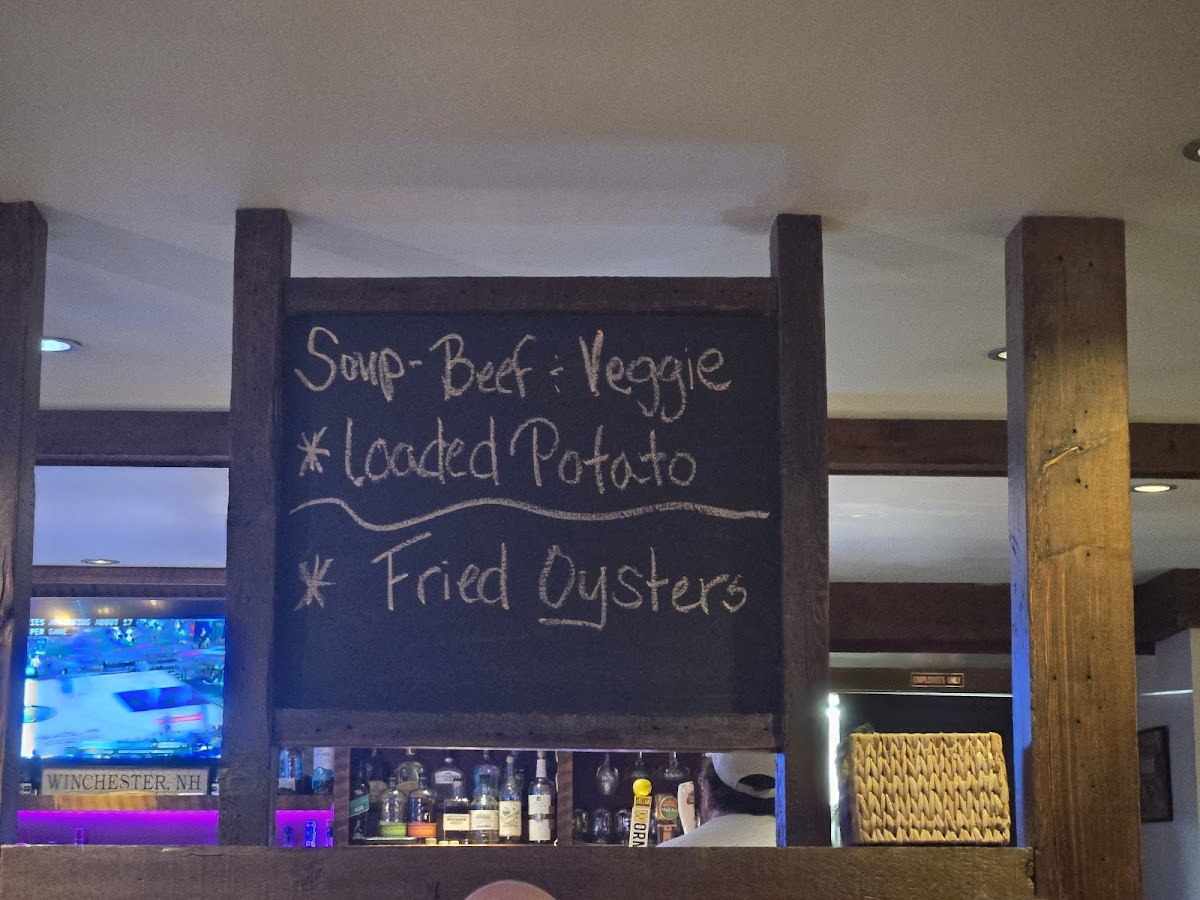 Soup- Beef & Veggie
* Loaded Potato
* Fried Oysters
PER GAME
WINCHESTER, NH
EMPLOYEES ONLY